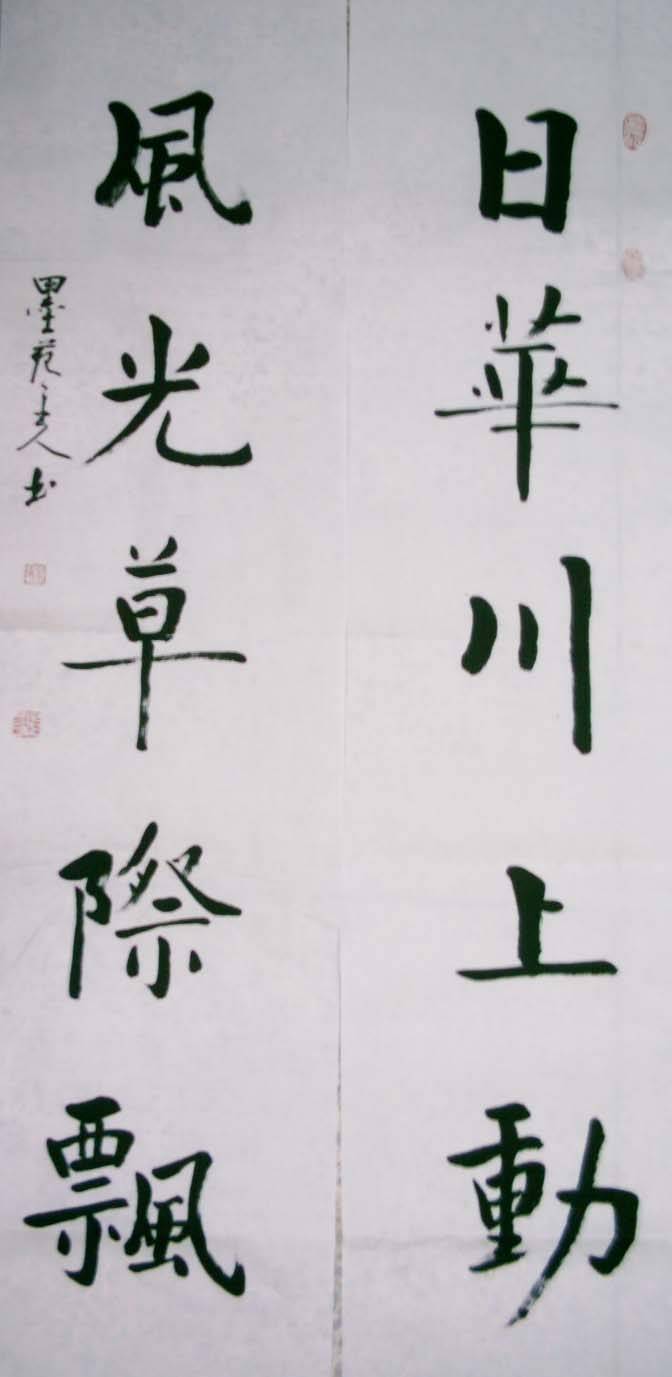 日華川上動
風光草際飄
墨苑主人书